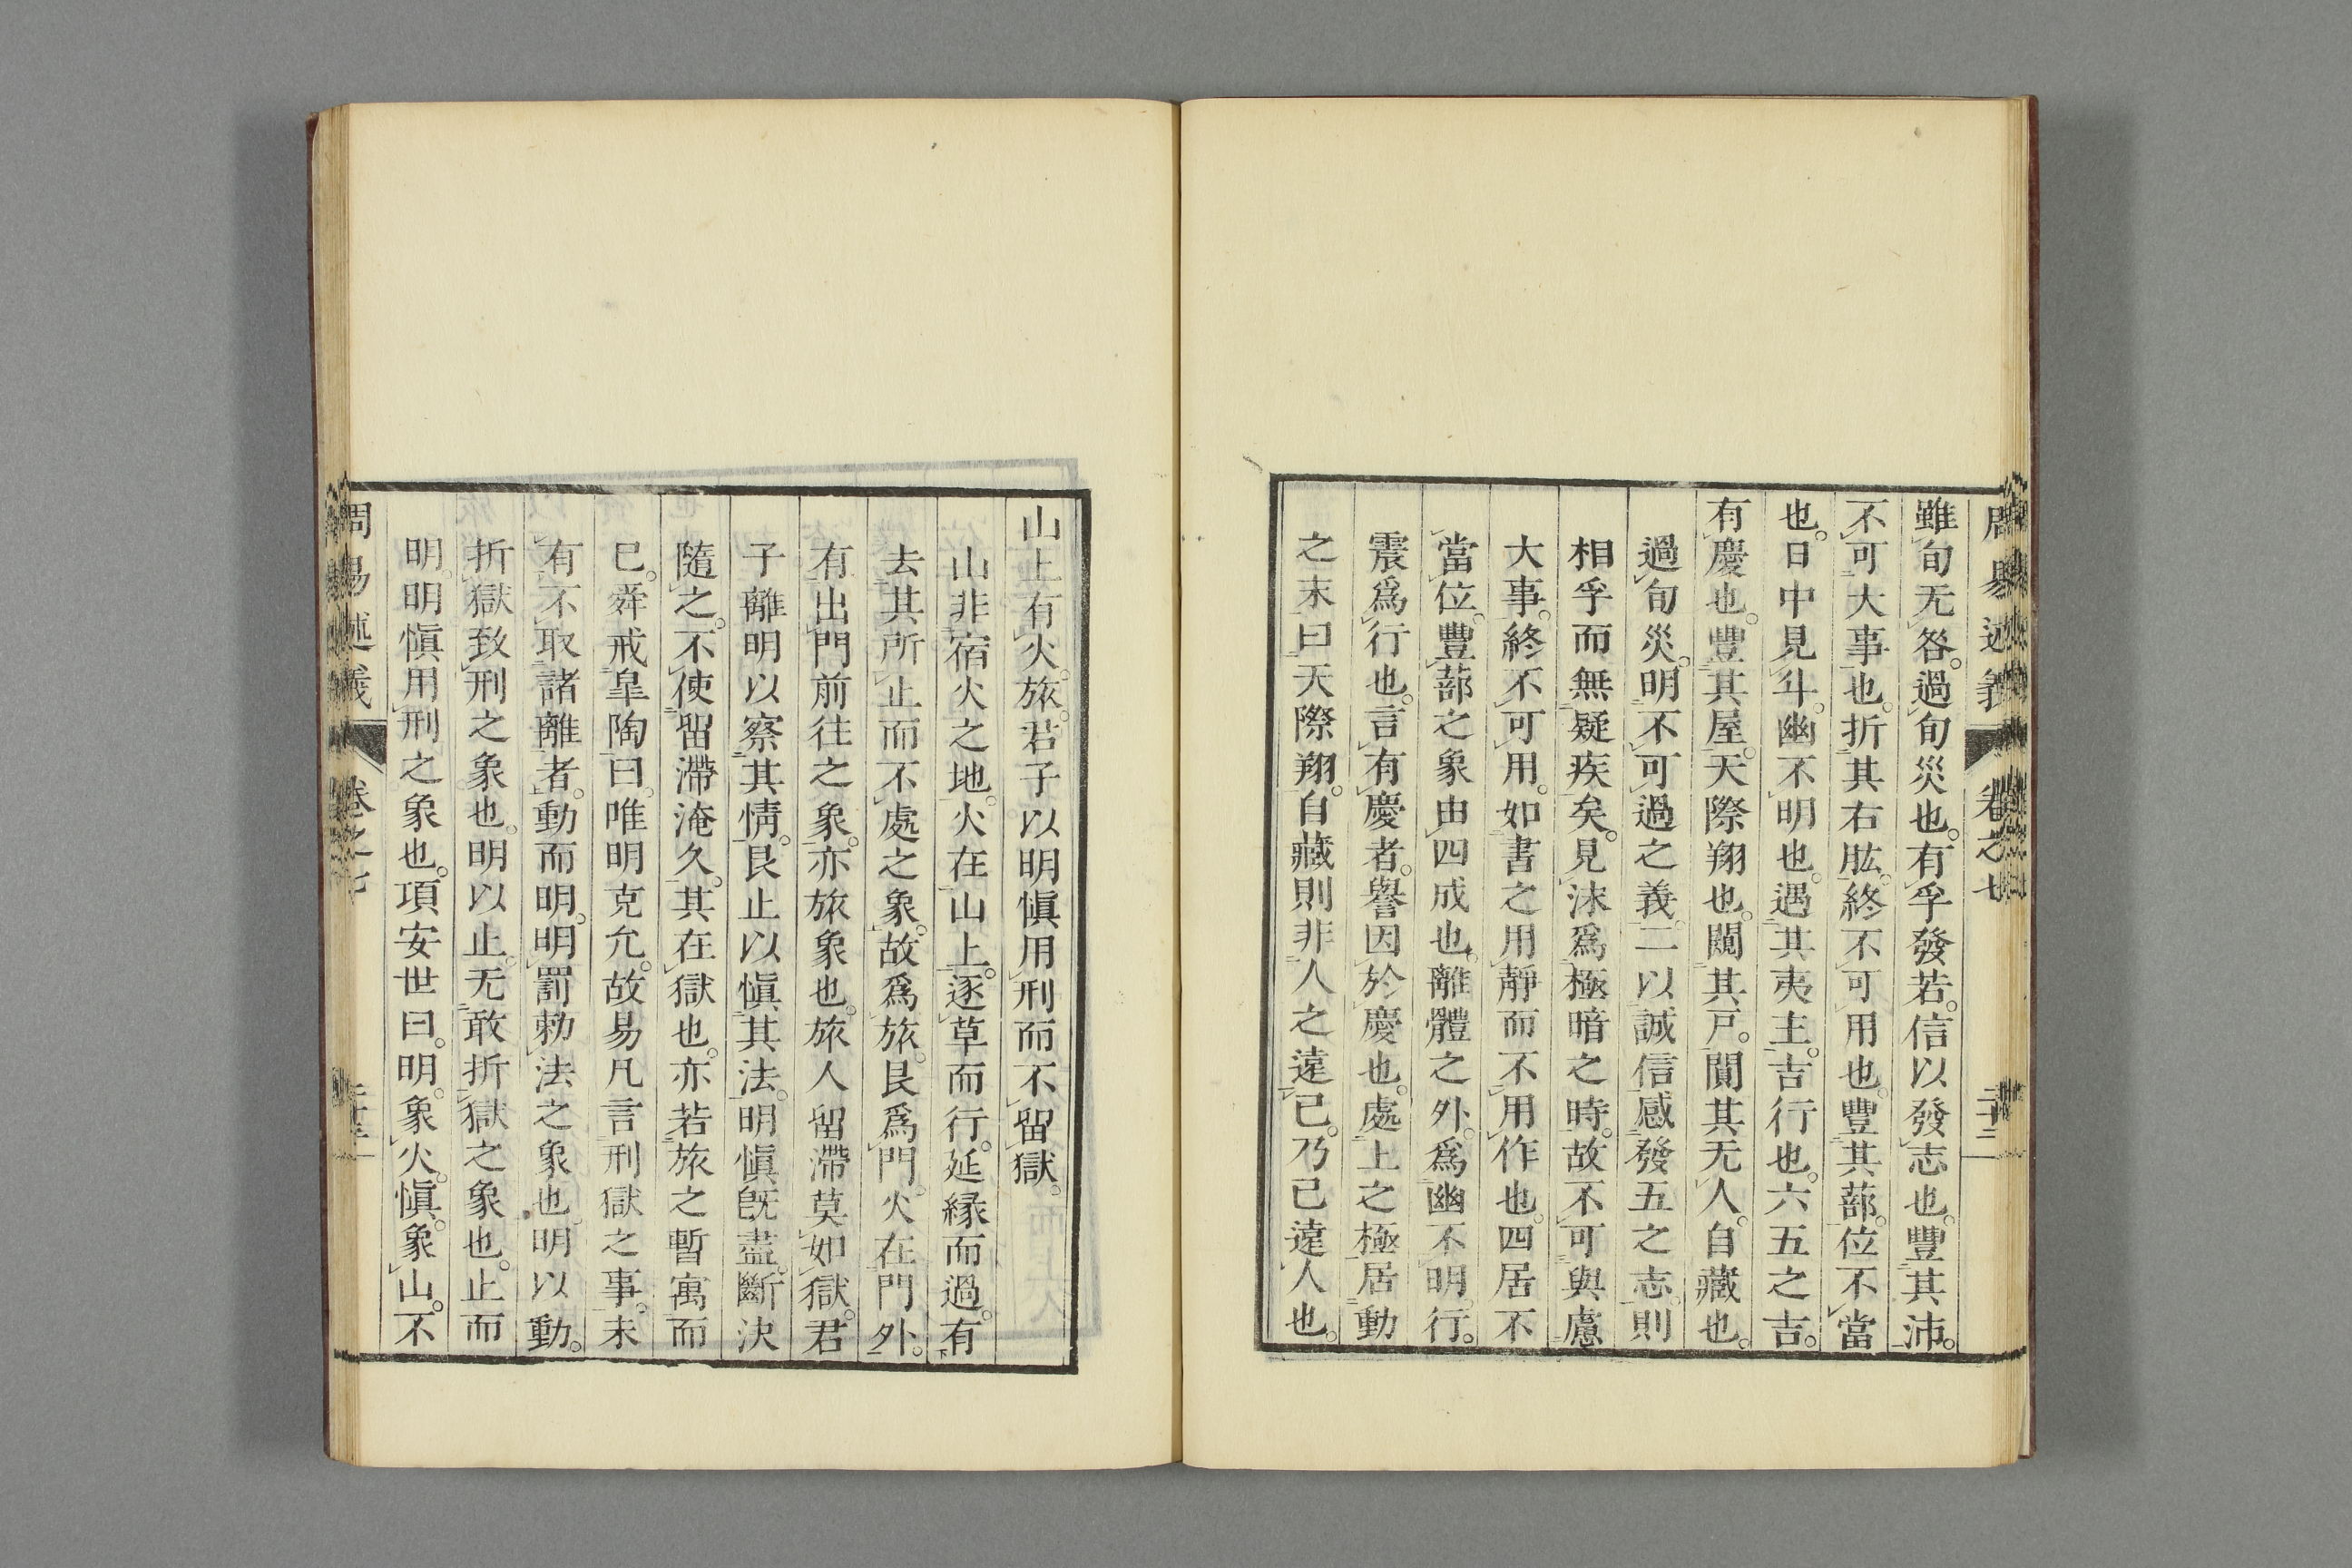 周易述義 卷之七 二十二
雖旬无咎。過旬災也。有孚發若。信以發志也。豐其沛。
不可大事也。折其右肱。終不可用也。豐其蔀。位不當
也。日中見斗。幽不明也。遇其夷主。吉行也。六五之吉。
有慶也。豐其屋。天際翔也。闚其戶。闃其无人。自藏也。
過旬災。明不可過之義。二以誠信感發五之志。則
相孚而無疑疾矣。見沬爲極暗之時。故不可與慮
大事。終不可用。如書之用靜而不用作也。四居不
當位。豐蔀之象由四成也。離體之外。爲幽不明。行。
震爲行也。言有慶者。譽因於慶也。處上之極居動
之末曰天際翔。自藏則非人之遠已。乃已遠人也。
山上有火。旅。君子以明愼用刑而不留獄。
山非宿火之地。火在山上。逐草而行。延緣而過。有
去其所止而不處之象。故爲旅。艮爲門。火在門外。
有出門前往之象。亦旅象也。旅人留滯莫如獄。君
子離明以察其情。艮止以愼其法。明愼旣盡。斷決
隨之。不使留滯淹久。其在獄也。亦若旅之暫寓而
已。舜戒皐陶曰。唯明克允。故易凡言刑獄之事。未
有不取諸離者。動而明。明罰勅法之象也。明以動。
折獄致刑之象也。明以止。无敢折獄之象也。止而
明。明愼用刑之象也。項安世曰。明。象火。愼。象山。不
周易述義 卷之七